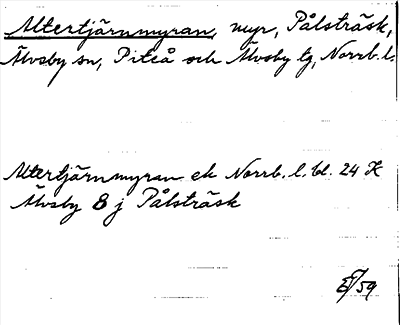 Altertjärnmyran, myr, Pålsträsk,
Älvsby sn, Piteå och Älvsby tg, Norrb. l.
Altertjärnmyran ek Norrb. l. bl. 24 K
Älvsby 8 j Pålsträsk
/59